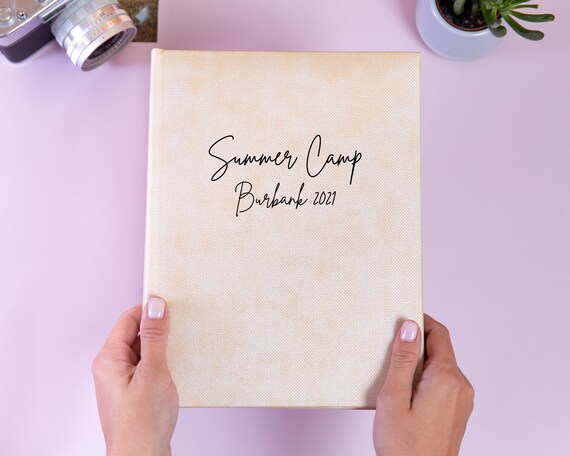 Summer Camp
Burbank 2021